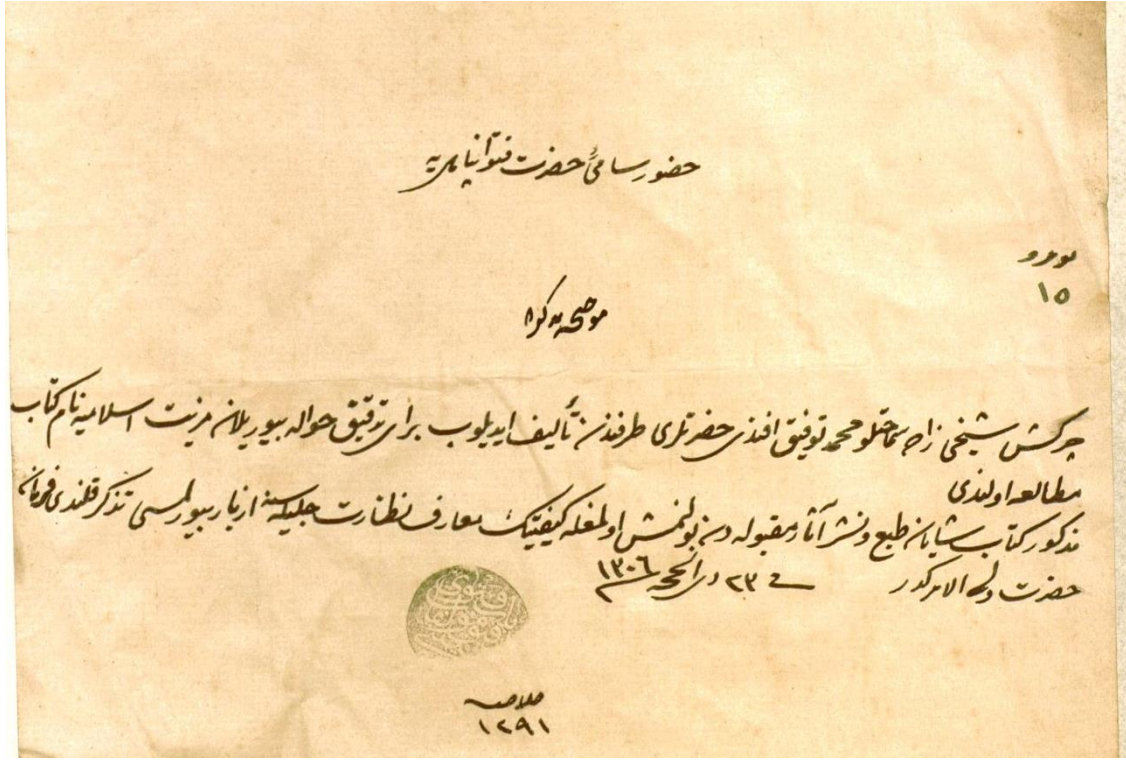 حضور سامئ حضرت فتواپناهی یه
نومرو
١٥
چرکش شیخی زاده سماحتلو محمد توفیق افندی حضرتلری طرفندن تألیف ایدیلوب برای تدقیق حواله بیوریلان مزیت اسلامیه نام کتاب
مطالعه اولندی
مذکور کتاب شایان طبع ونشر آثار مقبوله دن بولنمش اولمغله کیفیتک معارف نظارت جلیله سنه ازبار بیورلمسی تذکر قلندی فرمان
حضرت ولی الامرکدر فی ٢٣ ذی الحجه سنه ١٣٠٦
خلاصه
١٢٩١